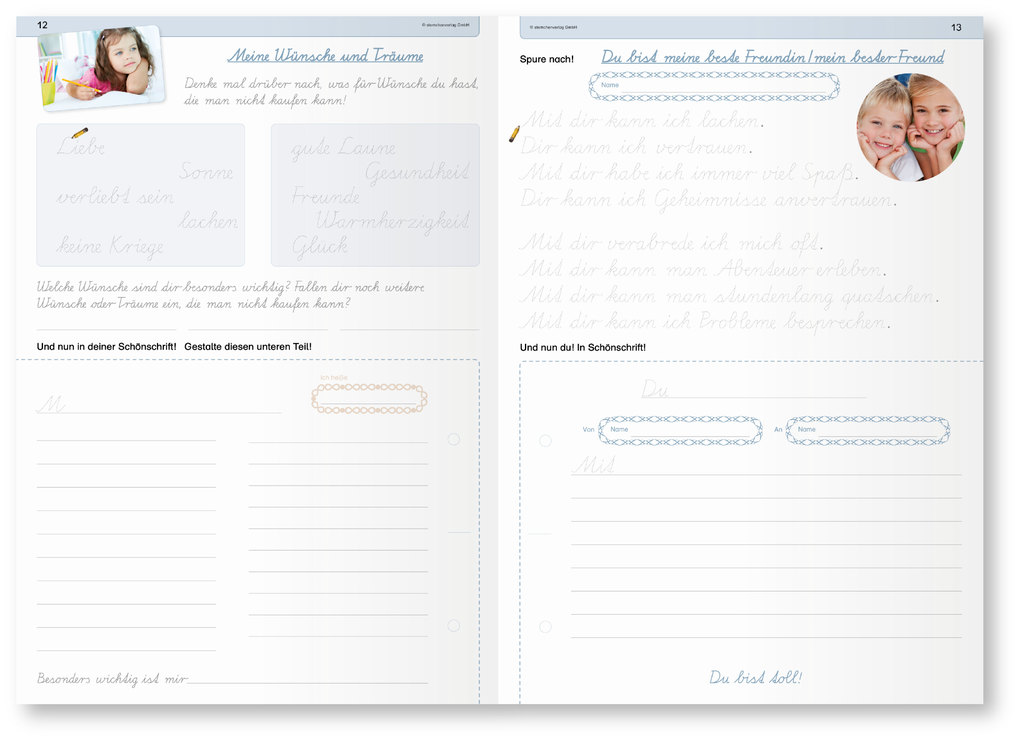 12
© sternchenverlag GmbH
Meine Wünsche und Träume
Denke mal drüber nach, was für Wünsche du hast,
die man nicht kaufen kann!
Liebe
Sonne
verliebt sein
lachen
keine Kriege
gute Laune
Gesundheit
Freunde
Warmherzigkeit
Glück
Welche Wünsche sind dir besonders wichtig? Fallen dir noch weitere
Wünsche oder Träume ein, die man nicht kaufen kann?
Und nun in deiner Schönschrift! Gestalte diesen unteren Teil!
Ich heiße
M
Besonders wichtig ist mir
© sternchenverlag GmbH
13
Spure nach!
Du bist meine beste Freundin/mein bester Freund
Name
Mit dir kann ich lachen.
Dir kann ich vertrauen.
Mit dir habe ich immer viel Spaß.
Dir kann ich Geheimnisse anvertrauen.
Mit dir verabrede ich mich oft.
Mit dir kann man Abenteuer erleben.
Mit dir kann man stundenlang quatschen.
Mit dir kann ich Probleme besprechen.
Und nun du! In Schönschrift!
Du
Von Name An Name
Mit
Du bist toll!